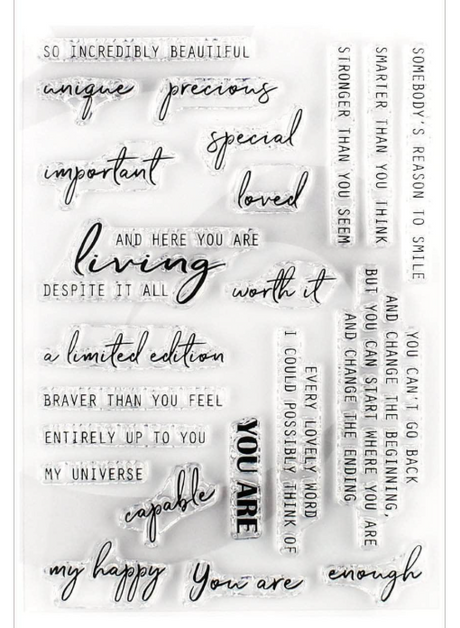 SO INCREDIBLY BEAUTIFUL
unique
precious
special
important
loved
AND HERE YOU ARE
living
DESPITE IT ALL
worth it
a limited edition
BRAVER THAN YOU FEEL
ENTIRELY UP TO YOU
MY UNIVERSE
capable
my happy
You are
enough
YOU ARE
STRONGER THAN YOU SEEM
SMARTER THAN YOU THINK
SOMEBODY'S REASON TO SMILE
EVERY LOVELY WORD
I COULD POSSIBLY THINK OF
YOU CAN'T GO BACK
AND CHANGE THE BEGINNING,
BUT YOU CAN START WHERE YOU ARE
AND CHANGE THE ENDING